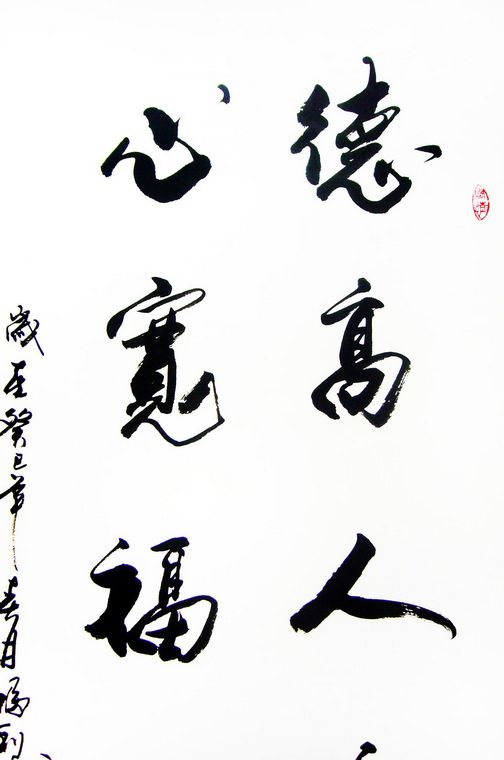 德高人
心寬福
歲在癸巳年春月